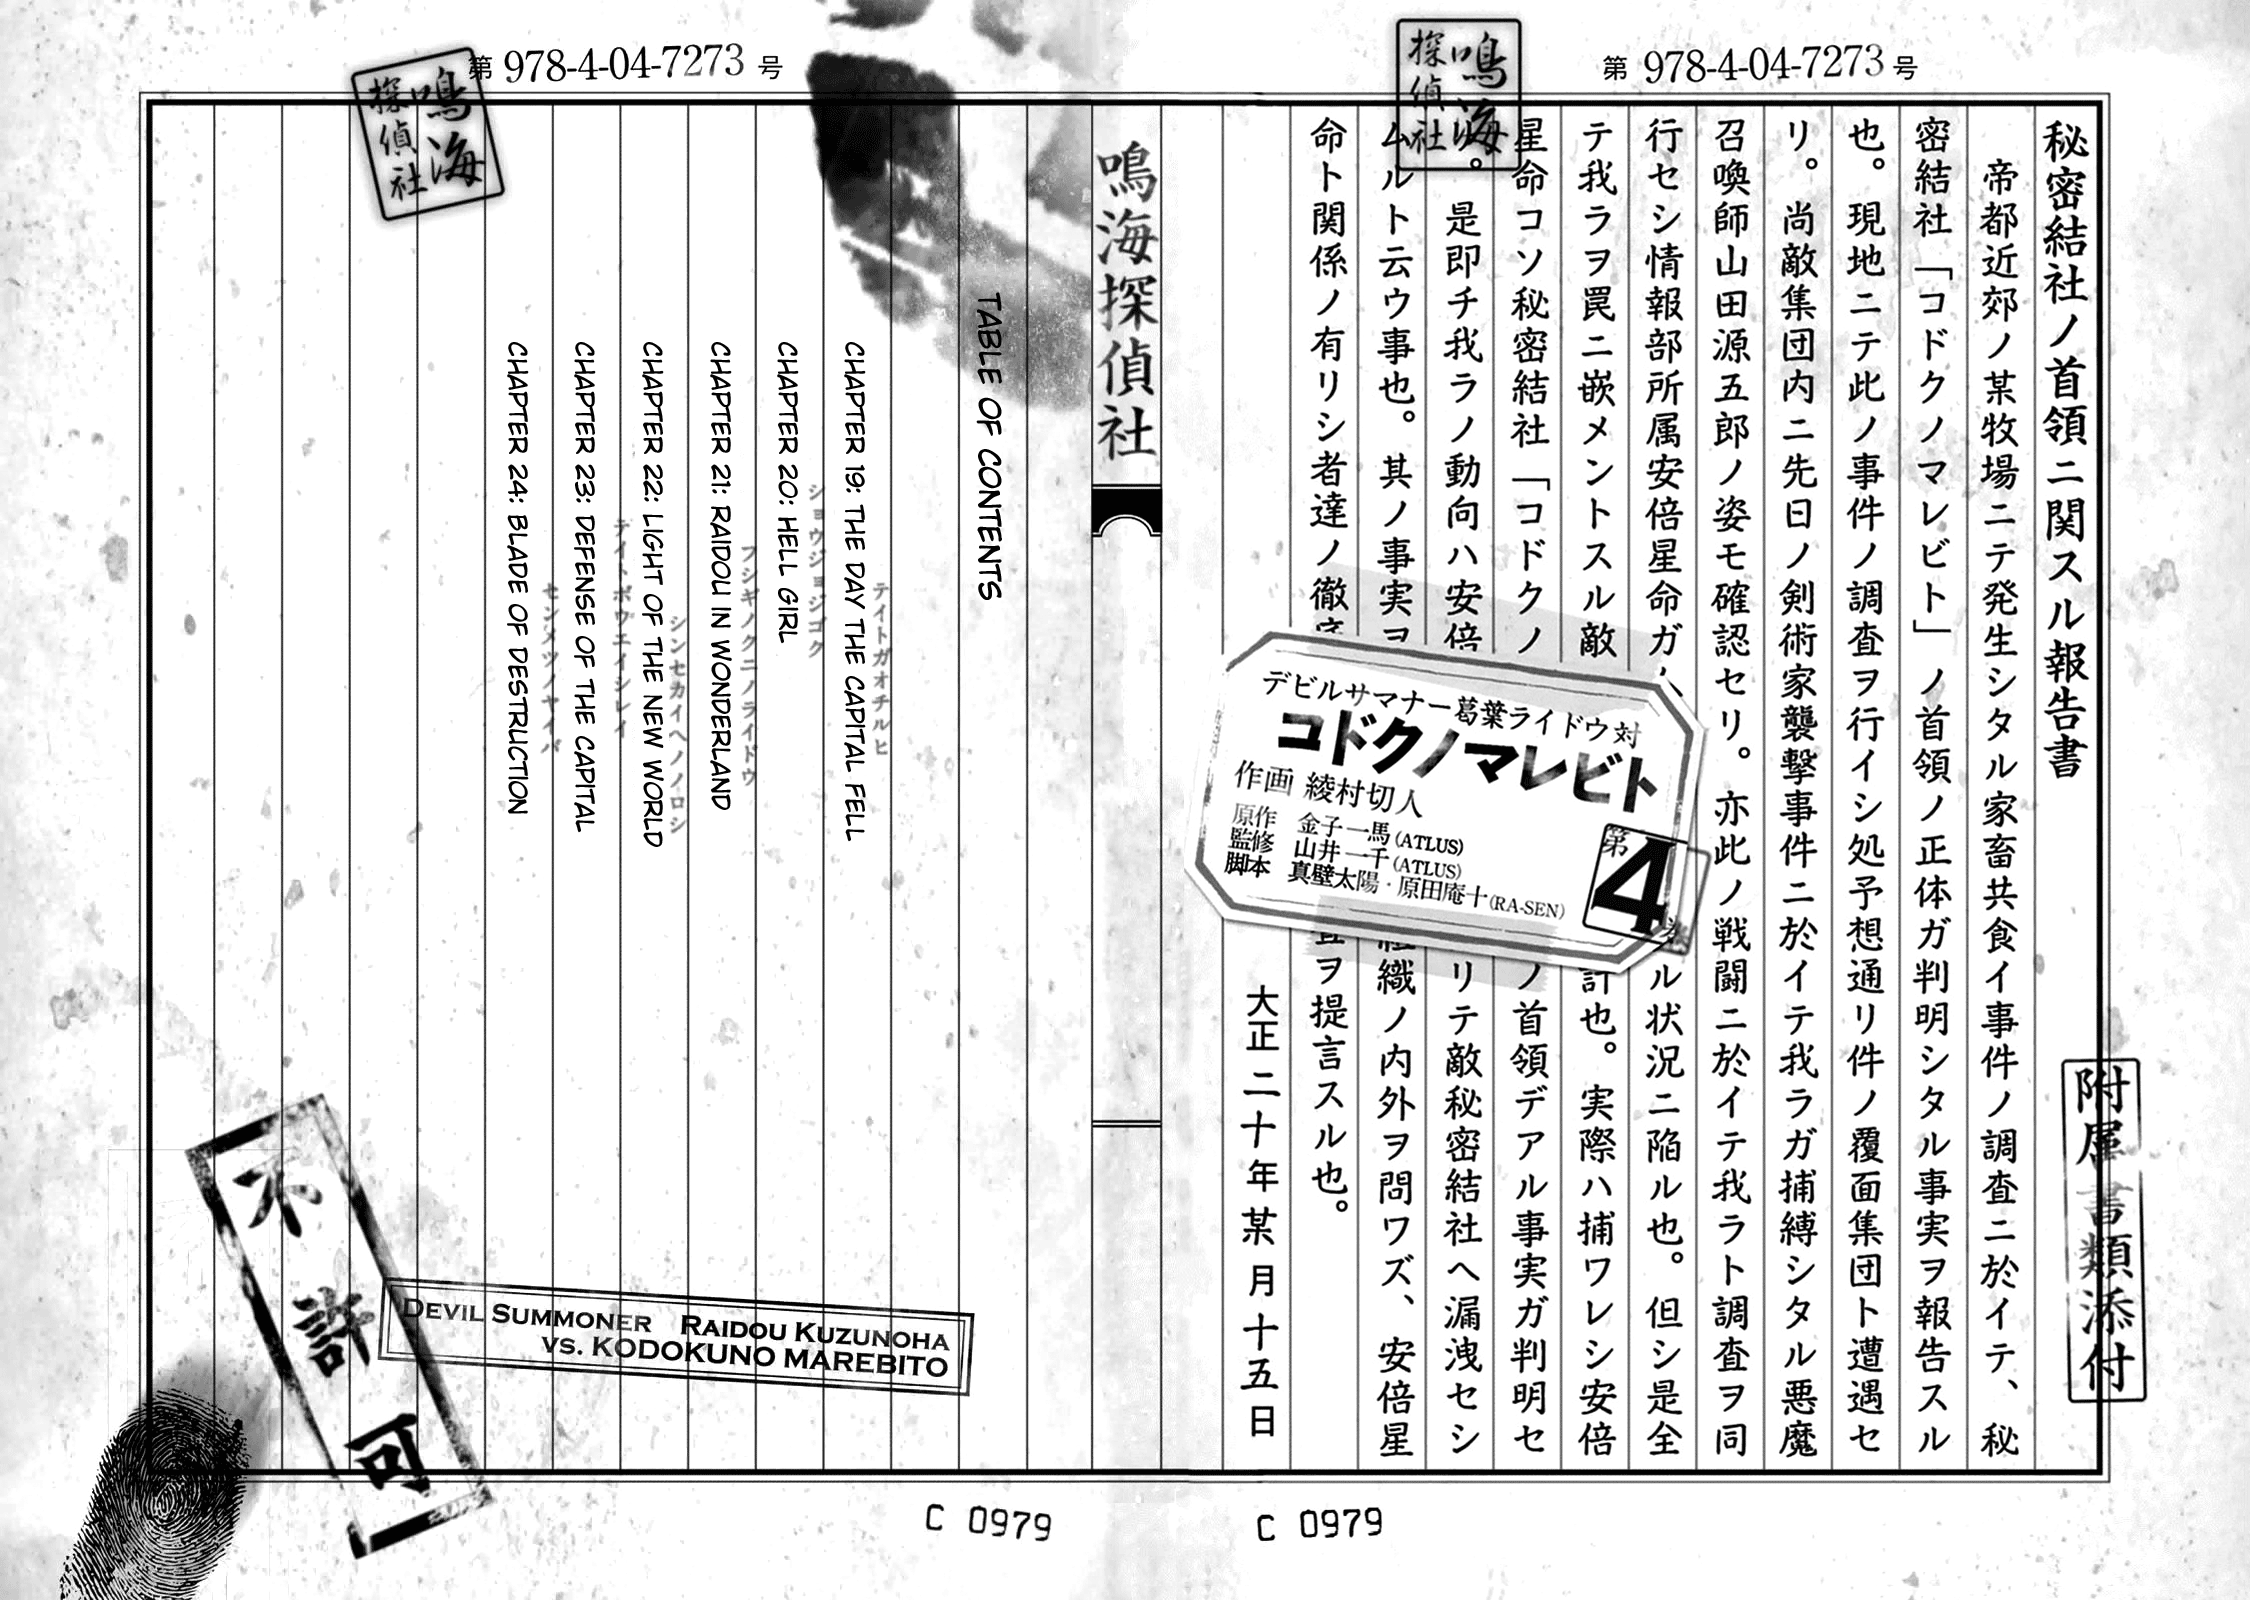 第 978-4-04-7273 号
鳴海
探偵社
附属書類添付
秘密結社ノ首領ニ関スル報告書
帝都近郊ノ某牧場ニテ発生シタル家畜共食イ事件ノ調査ニ於イテ、秘
密結社「コドクノマレビト」ノ首領ノ正体ガ判明シタル事実ヲ報告スル
也。現地ニテ此ノ事件ノ調査ヲ行イシ処予想通リ件ノ覆面集団ト遭遇セ
リ。尚敵集団内ニ先日ノ剣術家襲撃事件ニ於イテ我ラガ捕縛シタル悪魔
召喚師山田源五郎ノ姿モ確認セリ。亦此ノ戦闘ニ於イテ我ラト調査ヲ同
行セシ情報部所属安倍星命ガ
ル状況ニ陥ル也。但シ是全
テ我ラヲ罠ニ嵌メントスル敵
計也。実際ハ捕ワレシ安倍
星命コソ秘密結社「コドクノ
ノ首領デアル事実ガ判明セ
。是即チ我ラノ動向ハ安倍
リテ敵秘密結社ヘ漏洩セシ
ムルト云ウ事也。其ノ事実ヲ
組織ノ内外ヲ問ワズ、安倍星
命ト関係ノ有リシ者達ノ徹底
査ヲ提言スル也。
大正二十年某月十五日
デビルサマナー葛葉ライドウ対
コドクノマレビト
作画 綾村切人
原作 金子一馬(ATLUS)
監修 山井一千(ATLUS)
脚本 真壁太陽・原田庵十(RA-SEN)
第4巻
C 0979
鳴海探偵社
第 978-4-04-7273 号
鳴海
探偵社
TABLE OF CONTENTS
テイトガオチルヒ
CHAPTER 19: THE DAY THE CAPITAL FELL
ショウジョジゴク
CHAPTER 20: HELL GIRL
フシギノクニノライドウ
CHAPTER 21: RAIDOU IN WONDERLAND
シンセカイヘノノロシ
CHAPTER 22: LIGHT OF THE NEW WORLD
テイトボウエイシレイ
CHAPTER 23: DEFENSE OF THE CAPITAL
センメツノヤイバ
CHAPTER 24: BLADE OF DESTRUCTION
不許可
DEVIL SUMMONER RAIDOU KUZUNOHA
VS. KODOKUNO MAREBITO
C 0979